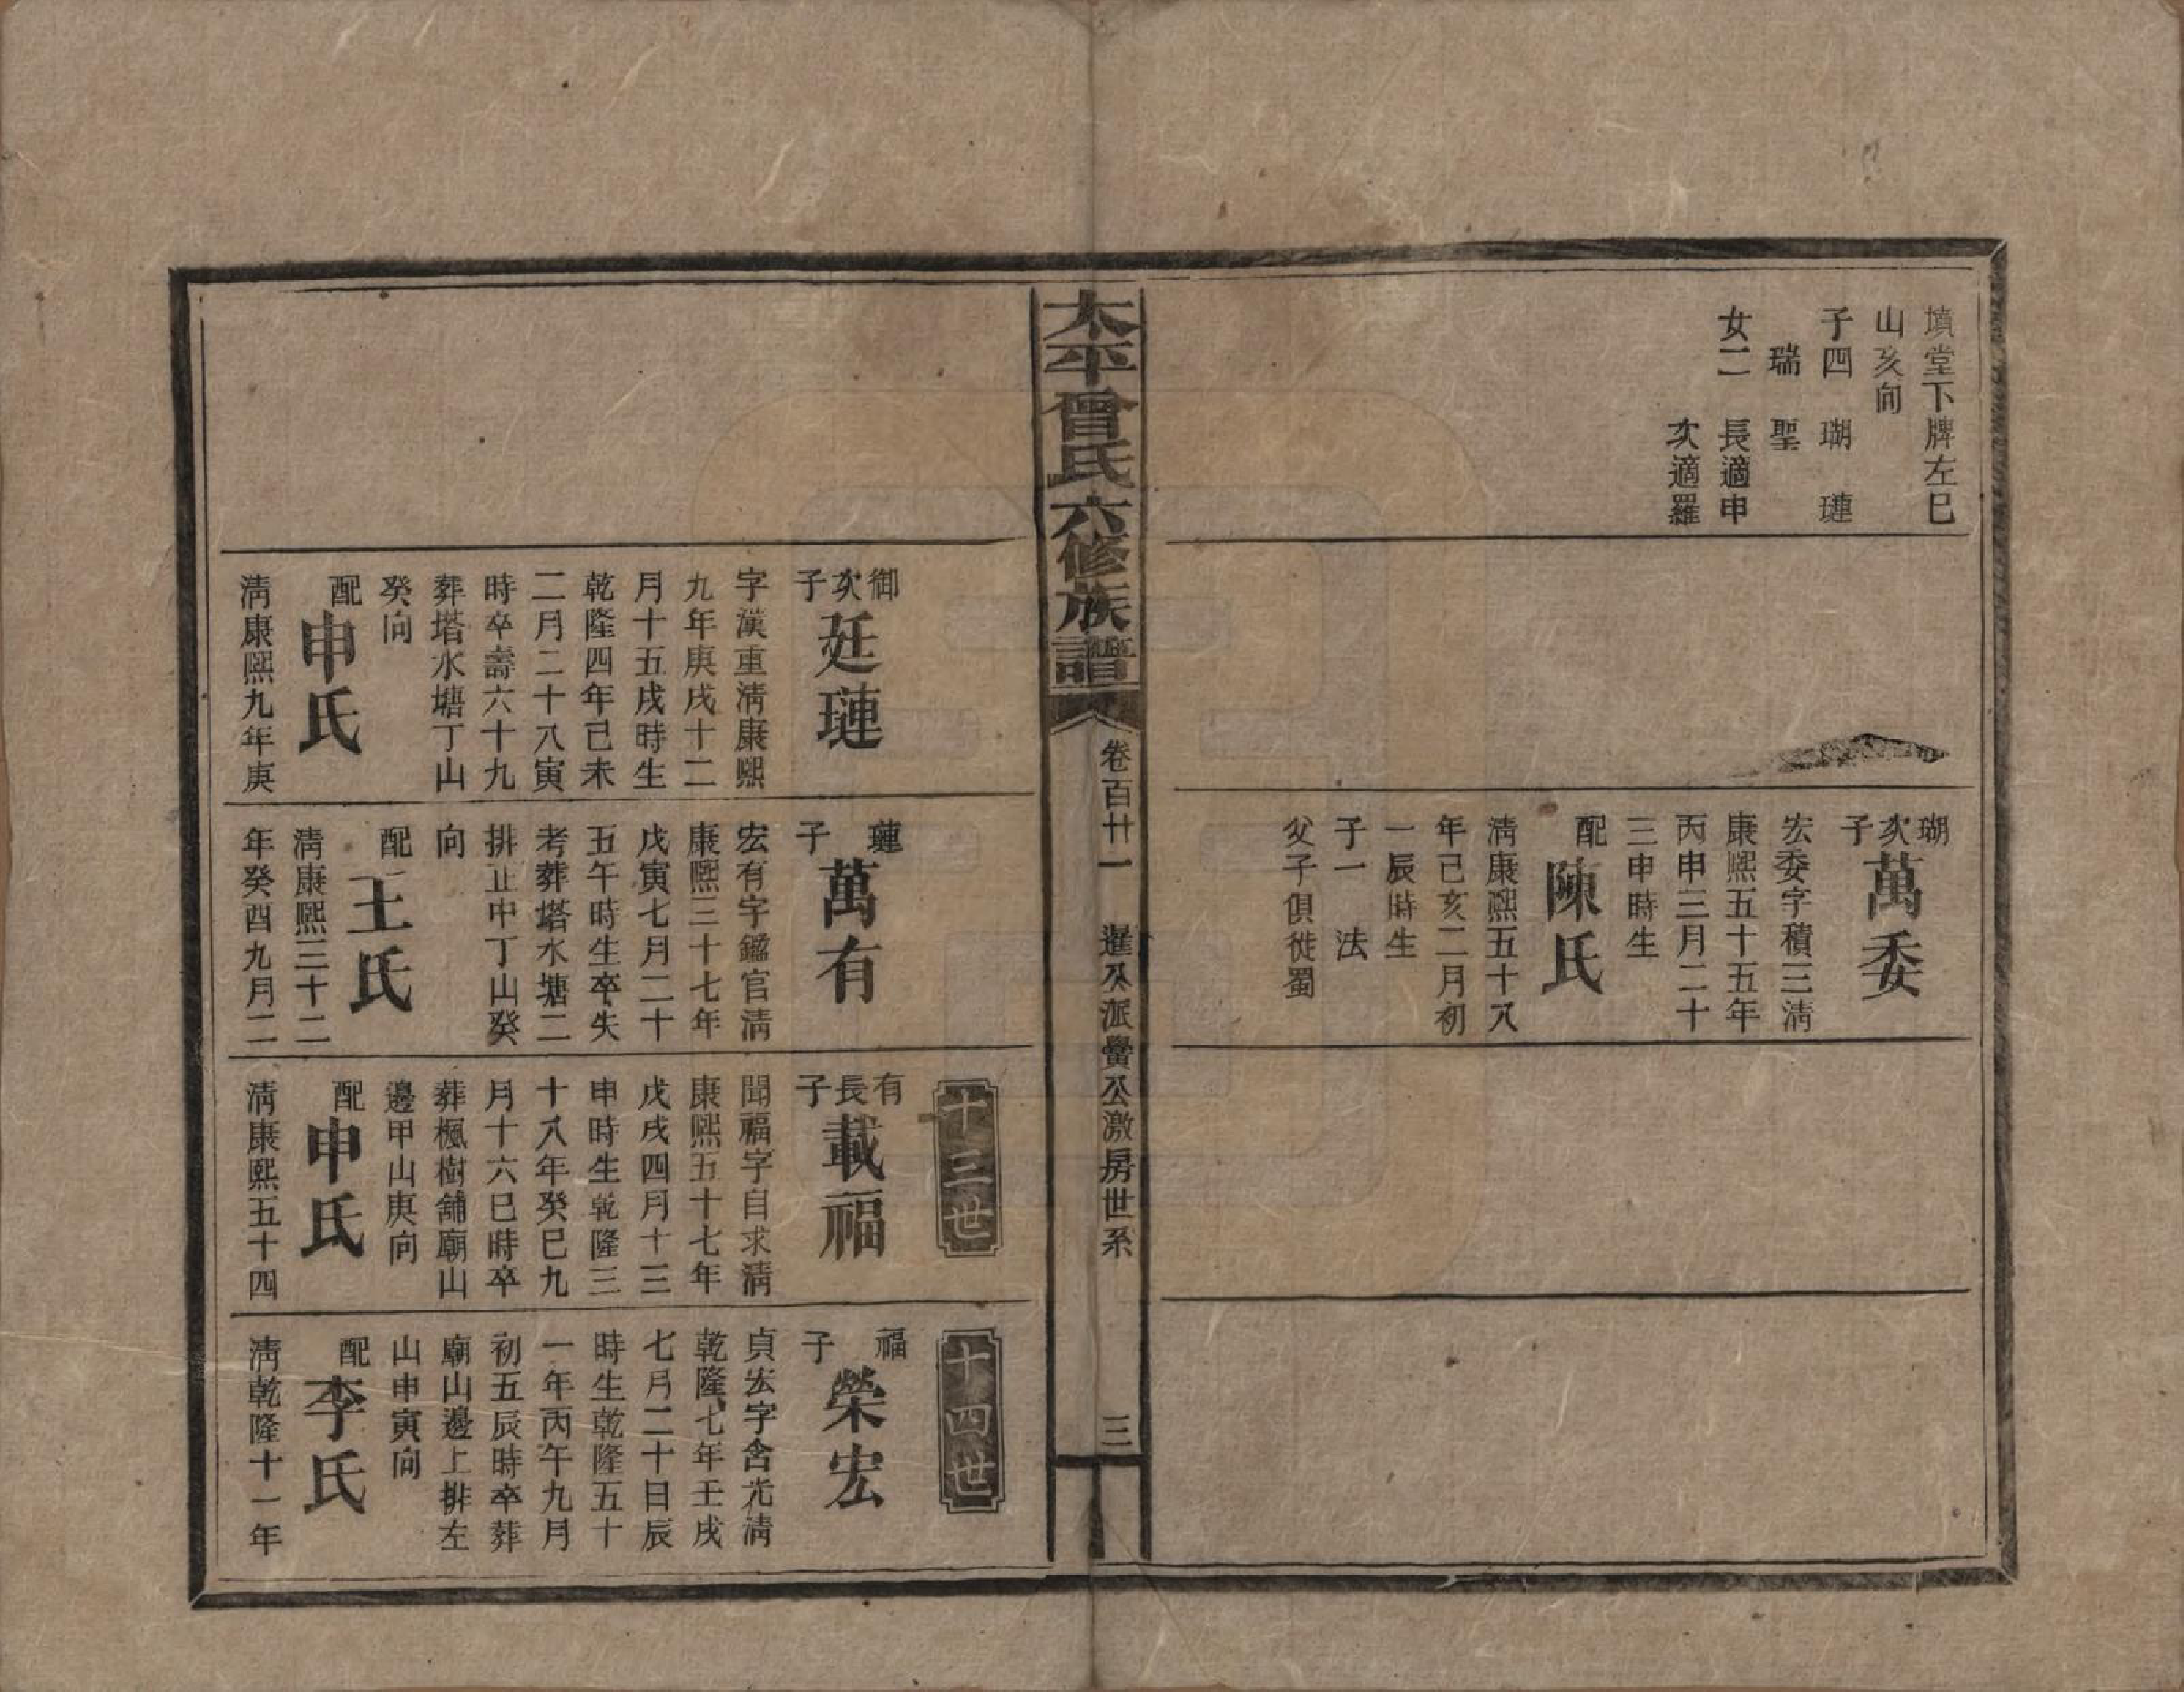 墳堂下牌左巳
山亥向
子四 瑚 璉
瑞 聖
女二 長適申
次適羅
瑚次子 萬委
宏委字積三淸
康熙五十五年
丙申三月二十
三申時生
配 陳氏
淸康熙五十八
年己亥二月初
一辰時生
子一 法
父子俱徙蜀
太平曾氏六修族譜
卷百廿一 暹公派黌公激房世系 三
御次子 廷璉
字漢重淸康熙
九年庚戌十二
月十五戌時生
乾隆四年己未
二月二十八寅
時卒壽六十九
葬塔水塘丁山
癸向
配 申氏
淸康熙九年庚
璉子 萬有
宏有字鑑官淸
康熙三十七年
戊寅七月二十
五午時生卒失
考葬塔水塘二
排正中丁山癸
向
配 王氏
淸康熙三十二
年癸酉九月二
十三世
有長子 載福
聞福字自求淸
康熙五十七年
戊戌四月十三
申時生乾隆三
十八年癸巳九
月十六巳時卒
葬楓樹舖廟山
邊甲山庚向
配 申氏
淸康熙五十四
十四世
福子 榮宏
貞宏字含光淸
乾隆七年壬戌
七月二十日辰
時生乾隆五十
一年丙午九月
初五辰時卒葬
廟山邊上排左
山申寅向
配 李氏
淸乾隆十一年